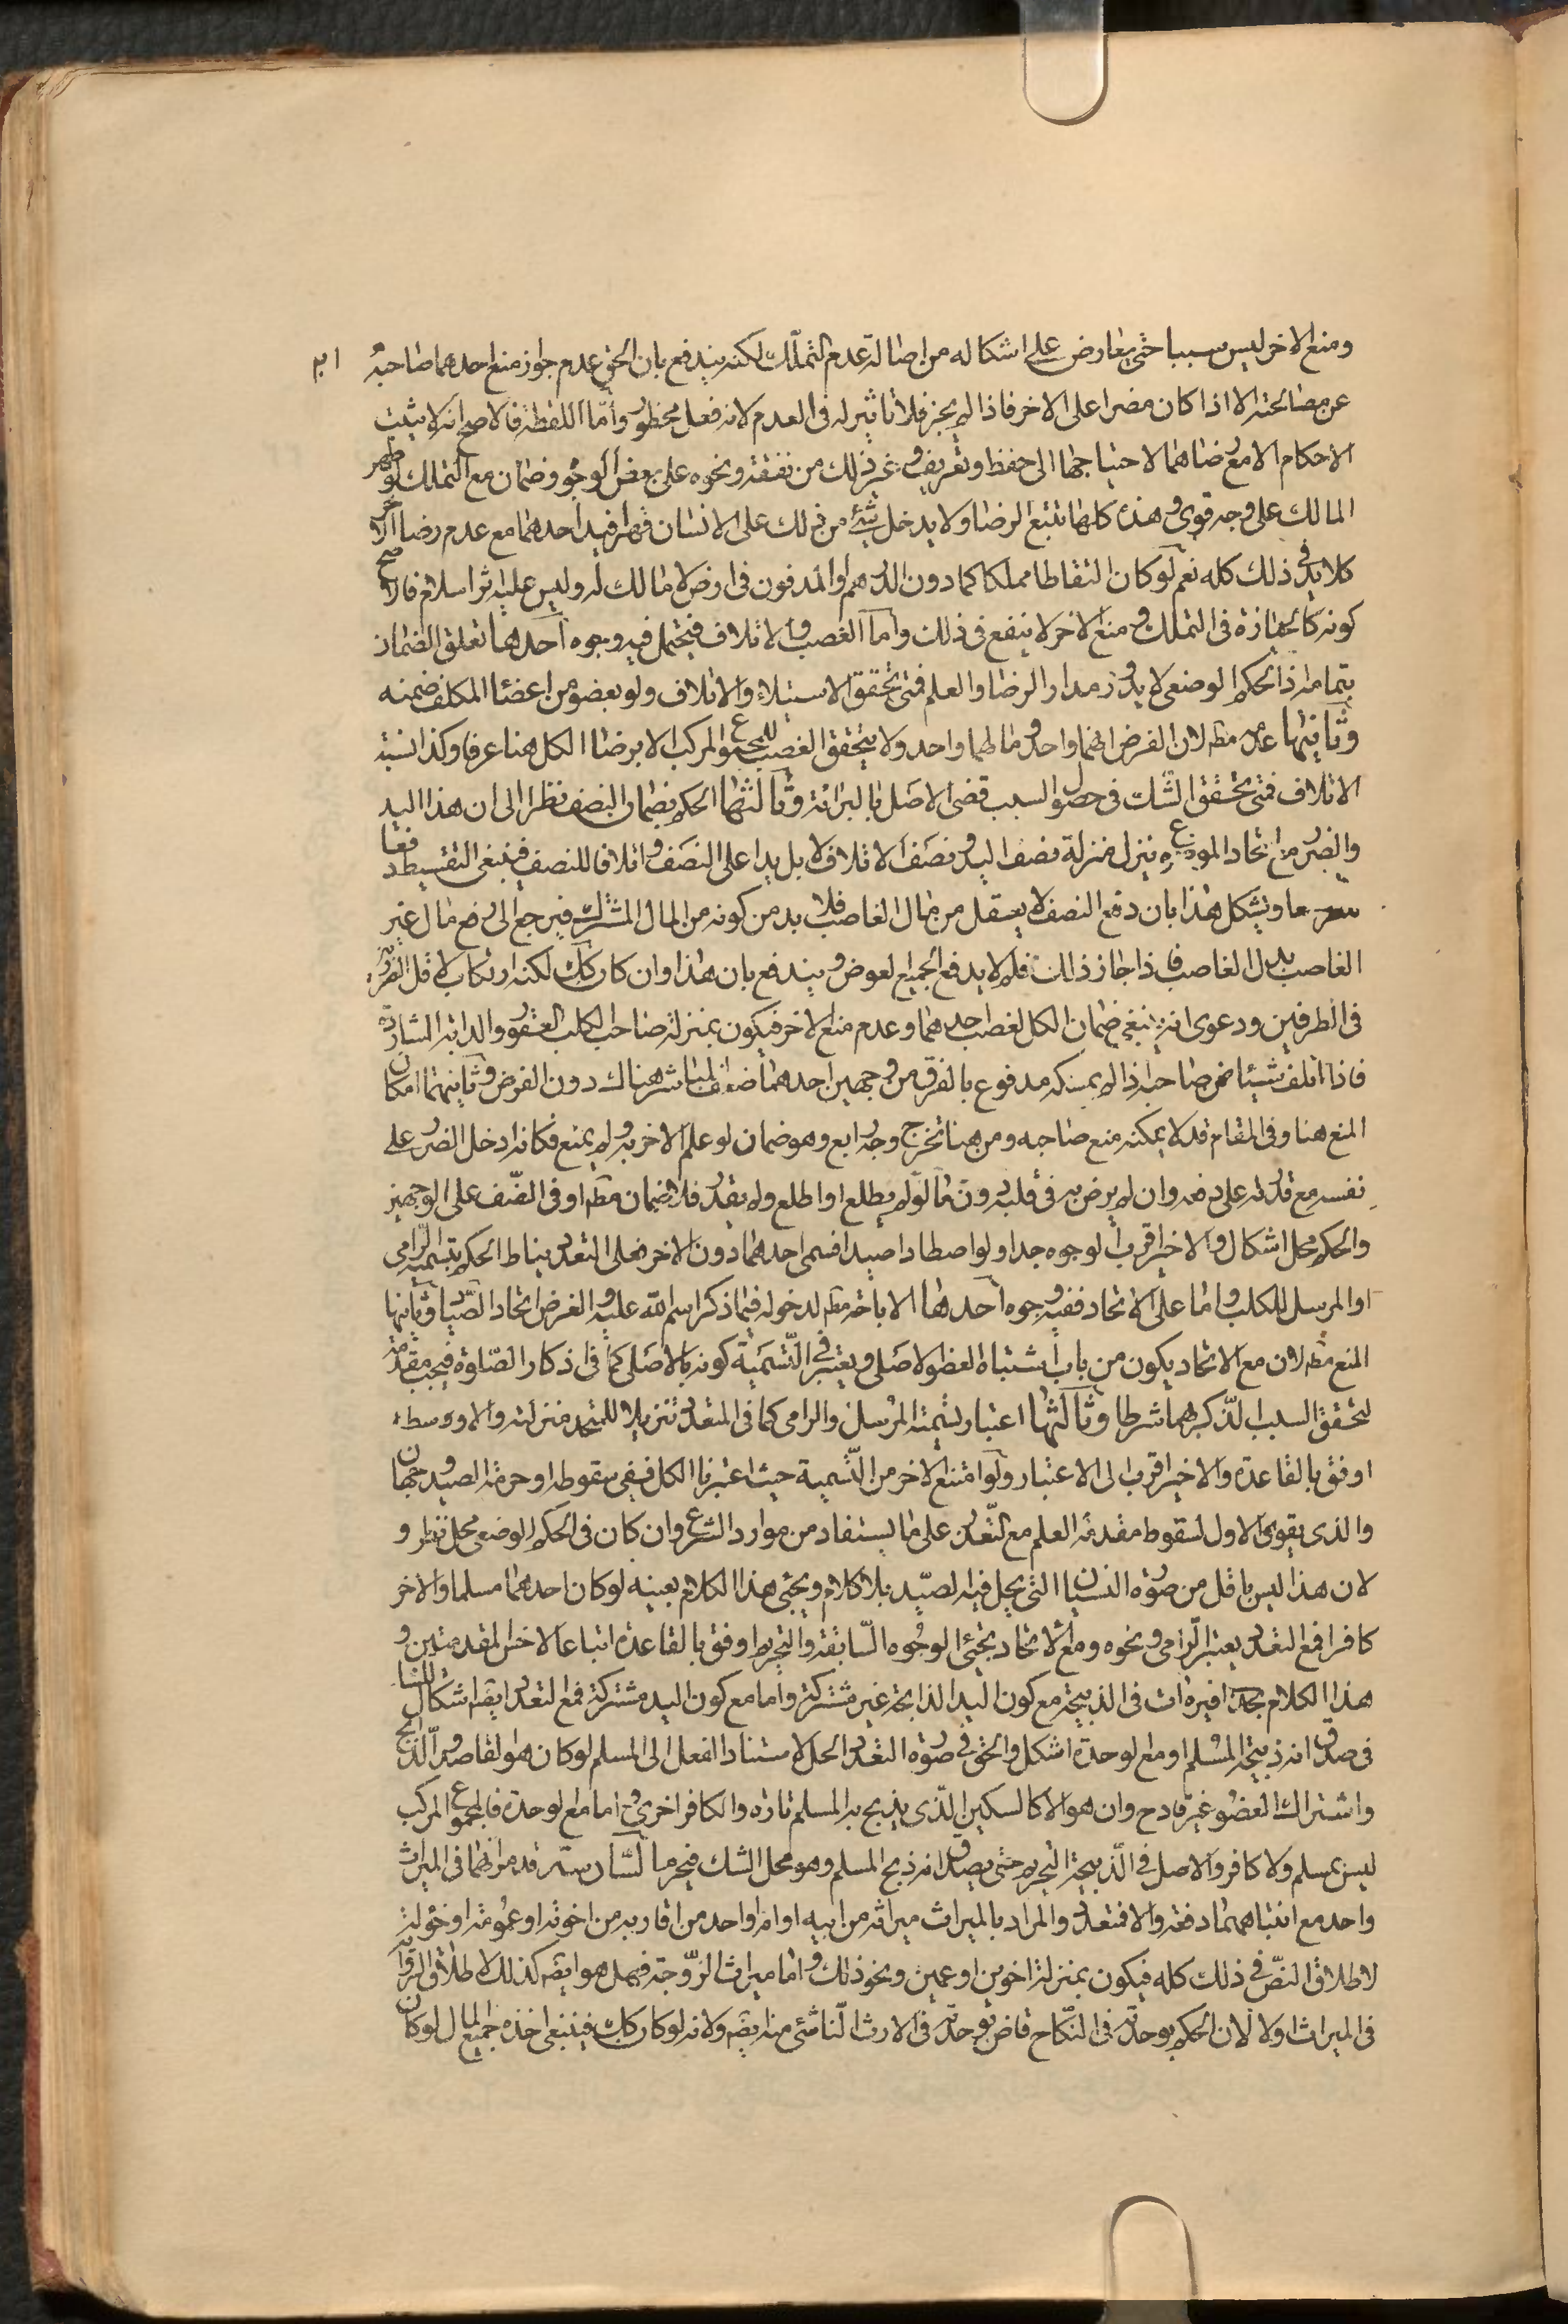 ومنع الاخر ليس سببا حتى يعارض على اشكاله من اصالة عدم التملك لكنه يندفع بان الحق عدم جواز منع احدهما صاحبه
عن مصالحته الا اذا كان مضرا على الاخر فاذا لم يجز فلا تاثير له فى العدم لانه فعل محظور واما اللقطة فالاصح انه لا يثبت
الاحكام الا مع رضاهما لاحتياجها الى حفظ وتعريف وغير ذلك من نفقة ونحوه على بعض الوجوه وضمان مع التملك لو ظهر
المالك على وجه قوى وهذه كلها تتبع الرضا ولا يدخل شئ من ذلك على الانسان قهرا فيد احدهما مع عدم رضا الاخر
كلا يد فى ذلك كله نعم لو كان التقاطا مملكا كما دون الدرهم او المدفون فى ارض لا مالك له وليس عليه اثر اسلام فالاصح
كونه كالحيازة فى التملك ومنع الاخر لا ينفع فى ذلك واما الغصب والاتلاف فيحتمل فيه وجوه احدها تعلق الضمان
بتمامه اذ الحكم الوضعى لا يدور مدار الرضا والعلم فمتى تحقق الاستيلاء والاتلاف ولو بعضو من اعضاء المكلف ضمنه
وثانيها عدمه مطم لان الفرض انهما واحد ومالهما واحد ولا يتحقق الغصب للمجموع المركب الا برضا الكل هنا عرفا وكذا نسبة
الاتلاف فمتى تحقق الشك فى حصول السبب قضى الاصل بالبرائة وثالثها الحكم بضمان النصف نظرا الى ان هذا اليد
والضرر مع اتحاد الموضوع ينزل منزلة نصف اليد ونصف الاتلاف لا بل يدا على النصف واتلافا للنصف فينبغى التقسيط دفعا
ويشكل هذا بان دفع النصف لا يعقل من مال الغاصب فلا بد من كونه من المال المشترك فيرجع الى دفع مال غير
الغاصب بدل الغاصب فاذا جاز ذلك فلم لا يدفع الجميع لعوض ويندفع بان هذا وان كان كك لكنه ارتكاب لاقل الضررين
فى الطرفين ودعوى انه ينبغى ضمان الكل لغصب احدهما وعدم منع الاخر فيكون بمنزلة صاحب الكلب العقور والدابة الشاردة
فاذا اتلف شيئا ضمن صاحبه اذا لم يمسكه مدفوع بالفرق من وجهين احدهما ضعف المباشر هناك دون الفرض وثانيهما امكان
المنع هنا وفى المقام قد لا يمكنه منع صاحبه ومن هنا تخرج وجه رابع وهو ضمان لو علم الاخر به ولم يمنع فكانه ادخل الضرر على
نفسه مع قدرته على دفعه وان لم يرض به فى قلبه دون ما لو لم يطلع او اطلع ولم يقدر فلا ضمان مطم او فى النصف على الوجهين
والحكم محل اشكال والاخير اقرب الوجوه جدا ولو اصطادا صيدا فسمى احدهما دون الاخر فعلى التعدد يناط الحكم بتسمية الرامى
او المرسل للكلب واما على الاتحاد ففيه وجوه احدها الاباحة مطم لدخوله فيما ذكر اسم الله عليه والفرض اتحاد الصياد وثانيها
المنع مطم لان مع الاتحاد يكون من باب اشتباه العضو الاصلى ويعتبر فى التسمية كونه بالاصلى كما فى اذكار الصلوة فيجب مقدمة
لتحقق السبب الذكر بهما شرطا وثالثها اعتبار تسمية المرسل والرامى كما فى المتعدد تنزيلا للمتحد منزلته والاوسط
اوفق بالقاعدة والاخير اقرب الى الاعتبار ولو امتنع الاخر من التسمية حيث اعتبرنا الكل ففى سقوطه او حرمة الصيد وجهان
والذى يقوى الاول لسقوط مقدمة العلم مع التعذر على ما يستفاد من موارد الشرع وان كان فى الحكم الوضعى محل نظر و
لان هذا ليس باقل من صورة النسيان التى يحل فيه الصيد بلا كلام ويجئ هذا الكلام بعينه لو كان احدهما مسلما والاخر
كافرا فمع التعدد يعتبر الرامى ونحوه ومع الاتحاد يجئ الوجوه السابقة والتحريم اوفق بالقاعدة اتباعا لاخس المقدمتين و
هذا الكلام بحذافيره ات فى الذبيحة مع كون اليد الذابحة غير مشتركة واما مع كون اليد مشتركة فمع التعدد ايضا اشكال للشك
فى صدق انه ذبيحة المسلم او مع الوحدة اشكل والحق فى صورة التعدد الحل لاستناد الفعل الى المسلم لو كان هو القاصد الذابح
واشتراك العضو غير قادح وان هو الا كالسكين الذى يذبح به المسلم تارة والكافر اخرى واما مع الوحدة فالمجموع المركب
ليس بمسلم ولا كافر والاصل فى الذبيحة التحريم حتى يصدق انه ذبح المسلم وهو محل الشك فيحرم السادسة قد مر انهما فى الميراث
واحد مع انتباههما دفعة والا فمتعدد والمراد بالميراث ميراثه من ابيه او امه او احد من اقاربه من اخوته او عمومته او خؤلته
لاطلاق النص فى ذلك كله فيكون بمنزلة اخوين او عمين ونحو ذلك واما ميراث الزوجة فهل هو ايضا كذلك لاطلاق الرواية
فى الميراث اولا لان الحكم بوحدته فى النكاح قاض بوحدته فى الارث الناشئ منه ايضا ولانه لو كان كك فينبغى اخذه جميع المال لو كان